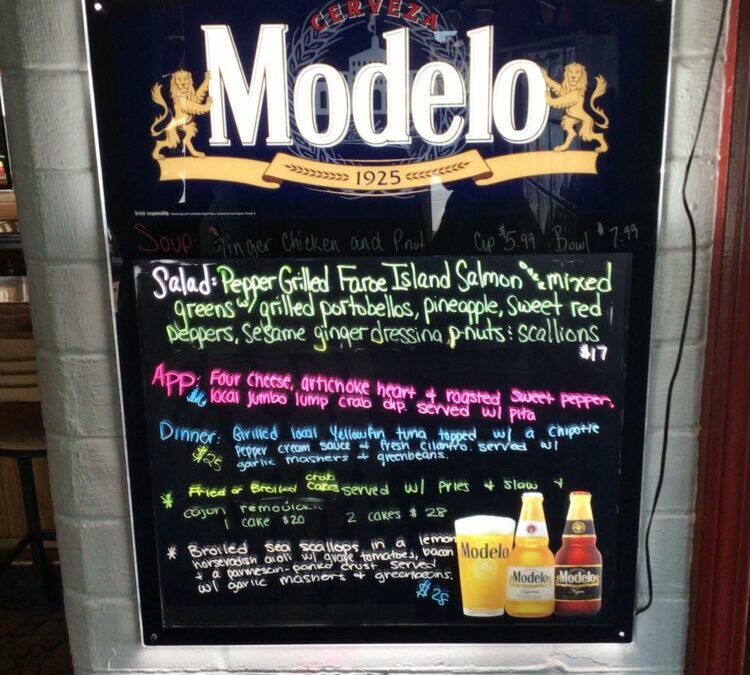 CERVEZA
Modelo
1925
Drink responsibly.
Soup: Ginger Chicken and P.nut Cup $5.99 Bowl $7.99
Salad: Pepper Grilled Faroe Island Salmon mixed
greens w/ grilled portobellos, pineapple, sweet red
peppers, sesame ginger dressing, p-nuts & scallions
$17
App: Four cheese, artichoke heart & roasted sweet pepper,
local jumbo lump crab dip. served w/ pita
Dinner: Grilled local Yellowfin tuna topped w/ a chipotle
$25 pepper cream sauce & fresh cilantro. served w/
garlic mashers & greenbeans.
* Fried or Broiled crab cakes served w/ fries & slaw &
cajun remoulade
1 cake $20 2 cakes $28
* Broiled sea scallops in a lemon
horseradish aioli w/ grape tomatoes, bacon
& a parmesan-panko crust served
w/ garlic mashers & greenbeans.
$28
Modelo
Modelo
Especial
Modelo
Negra